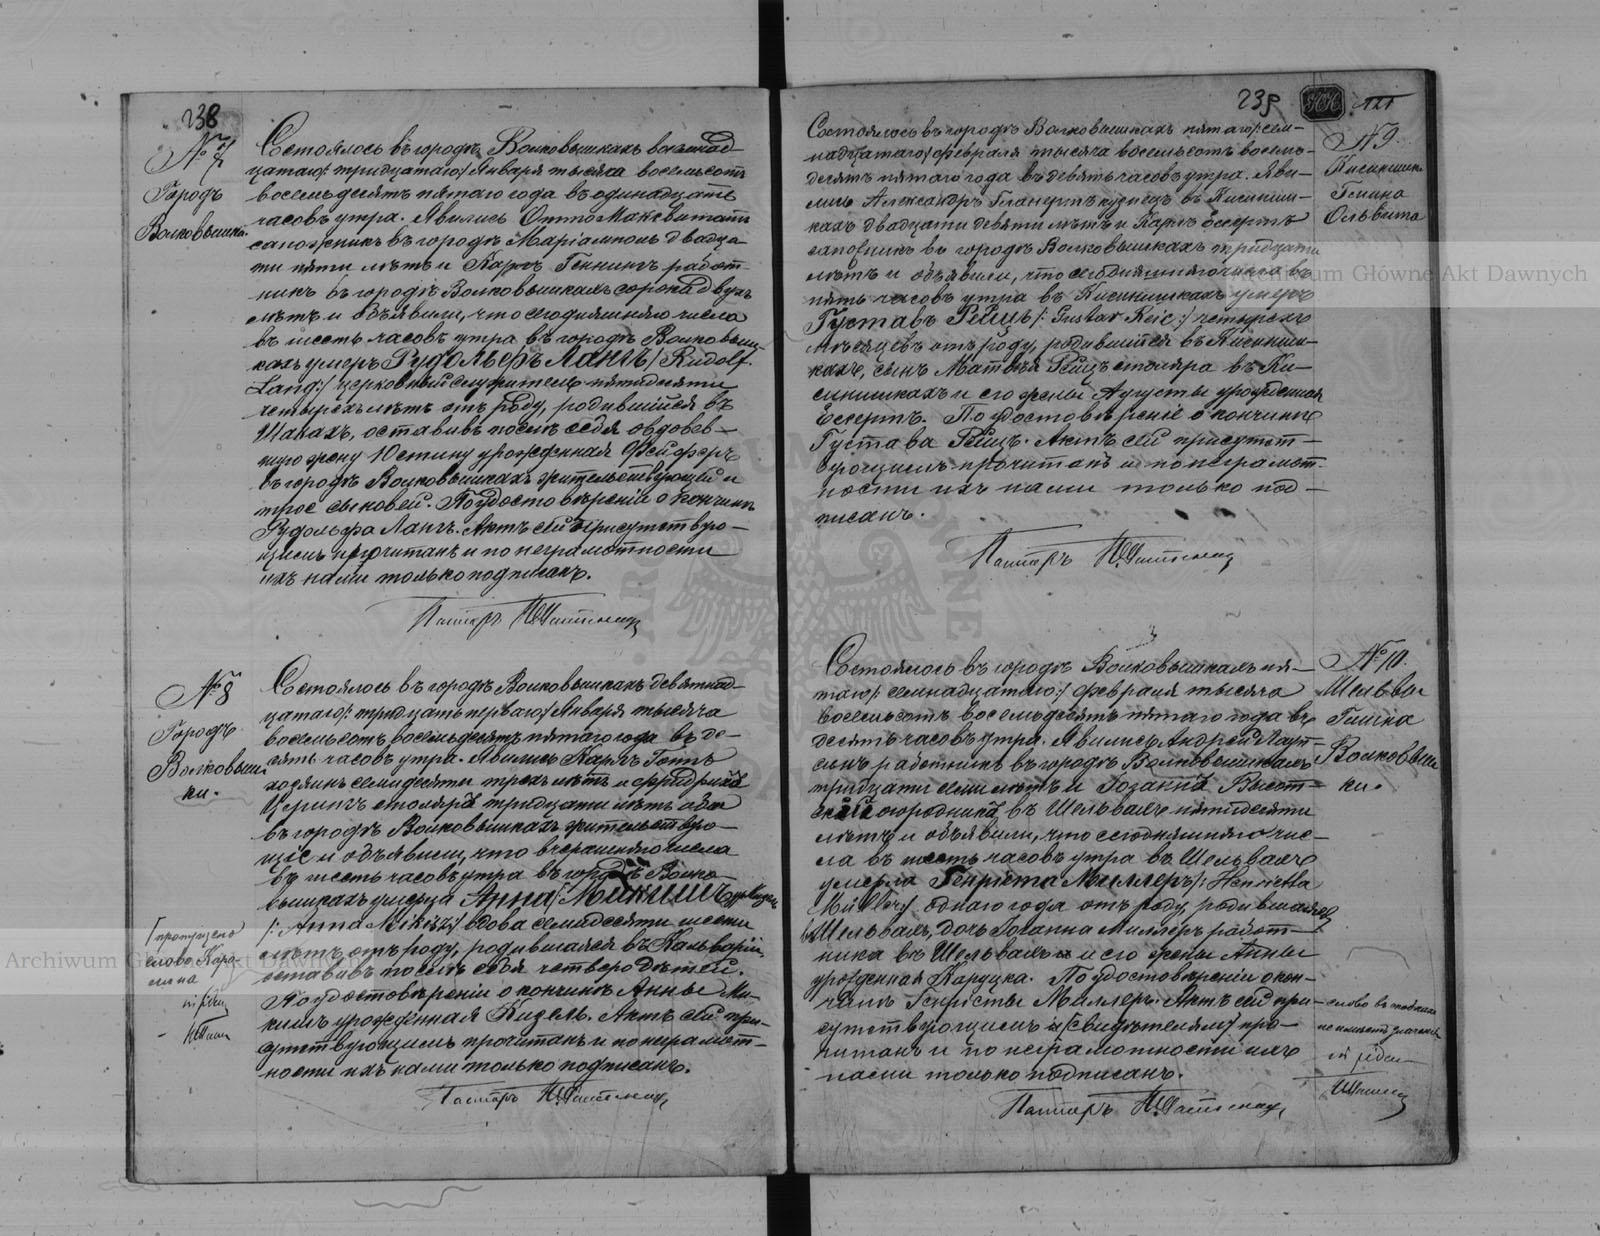 238
№ 7
Городъ
Волковышки
Состоялось въ городѣ Волковышкахъ восемнад-
цатаго /: тридцатаго :/ Января тысяча восемьсотъ
восемьдесятъ пятаго года въ одинадцать
часовъ утра. Явились Отто
сапожникъ въ городѣ Маріамполь двадца-
ти пяти лѣтъ и Карлъ Геннингъ работ-
никъ въ городѣ Волковышкахъ сорока двухъ
лѣтъ и объявили, что сегодняшняго числа
въ шесть часовъ утра въ городѣ Волковыш-
кахъ умеръ Рудольфъ Лангъ /: Rudolf
Lang :/ церковный служитель пятидесяти
четырехъ лѣтъ отъ роду, родившійся въ
Шакахъ, оставивъ послѣ себя овдовѣв-
шую жену Юстину урожденная
въ городѣ Волковышкахъ жительствующей и
трое сыновей. По удостовѣреніи о кончинѣ
Рудольфа Лангъ. Актъ сей присутствую-
щимъ прочитанъ и по неграмотности
ихъ нами только подписанъ.
Пасторъ
№ 8
Городъ
Волковыш-
ки.
Состоялось въ городѣ Волковышкахъ девятнад-
цатаго /: тридцать перваго :/ Января тысяча
восемьсотъ восемьдесятъ пятаго года въ де-
сять часовъ утра. Явились Карлъ Готъ
хозяинъ семидесяти трехъ лѣтъ и Фридрихъ
Церингъ столяръ тридцати лѣтъ оба
въ городѣ Волковышкахъ жительствую-
щіе и объявили, что вчерашняго числа
въ шесть часовъ утра въ городѣ Волко-
вышкахъ умерла Анна Микишъ
/: Anna Mikisz :/ вдова семидесяти шести
лѣтъ отъ роду, родившаяся въ Кальваріи,
оставивъ послѣ себя четверо дѣтей.
По удостовѣреніи о кончинѣ Анны Ми-
кишъ урожденная Кизель. Актъ сей при-
сутствующимъ прочитанъ и по неграмот-
ности ихъ нами только подписанъ.
Пасторъ
пропущено
слово
239
121
№ 9.
Гмина
Ольвита
Состоялось въ городѣ Волковышкахъ пятаго /: сем-
надцатаго :/ февраля тысяча восемьсотъ восемь-
десятъ пятаго года въ девять часовъ утра. Яви-
лись Александръ кузнецъ въ Кисиниш-
кахъ двадцати девяти лѣтъ и Карлъ Есертъ
сапожникъ въ городѣ Волковышкахъ тридцати
лѣтъ и объявили, что сегодняшняго числа въ
пять часовъ утра въ Кисинишкахъ умеръ
Густавъ Рейцъ /: Gustav Reic :/ четырехъ
мѣсяцевъ отъ роду, родившійся въ Кисиниш-
кахъ, сынъ Матвѣя Рейцъ столяра въ Ки-
синишкахъ и его жены Августы урожденная
Есертъ. По удостовѣреніи о кончинѣ
Густава Рейцъ. Актъ сей присутст-
вующимъ прочитанъ и по неграмот-
ности ихъ нами только под-
писанъ.
Пасторъ
№ 10.
Шельвы
Гмина
Волковыш-
ки.
Состоялось въ городѣ Волковышкахъ пя-
таго /: семнадцатаго :/ февраля тысяча
восемьсотъ восемьдесятъ пятаго года въ
десять часовъ утра. Явились Андрей
работникъ въ городѣ Волковышкахъ
тридцати семи лѣтъ и
огородникъ въ Шельвахъ пятидесяти
лѣтъ и объявили, что сегодняшняго чис-
ла въ шесть часовъ утра въ Шельвахъ
умерла Генріета Миллеръ /: Henrietta
Müller :/ одного года отъ роду, родившаяся
въ Шельвахъ, дочь Іоганна Миллеръ работ-
ника въ Шельвахъ и его жены Анны
урожденная Кардука. По удостовѣреніи о кон-
чинѣ Генріеты Миллеръ. Актъ сей при-
сутствующимъ и свидѣтелямъ про-
читанъ и по неграмотности ихъ
нами только подписанъ.
Пасторъ
слово въ скобкахъ
не имѣетъ значенія
Archiwum Główne Akt Dawnych